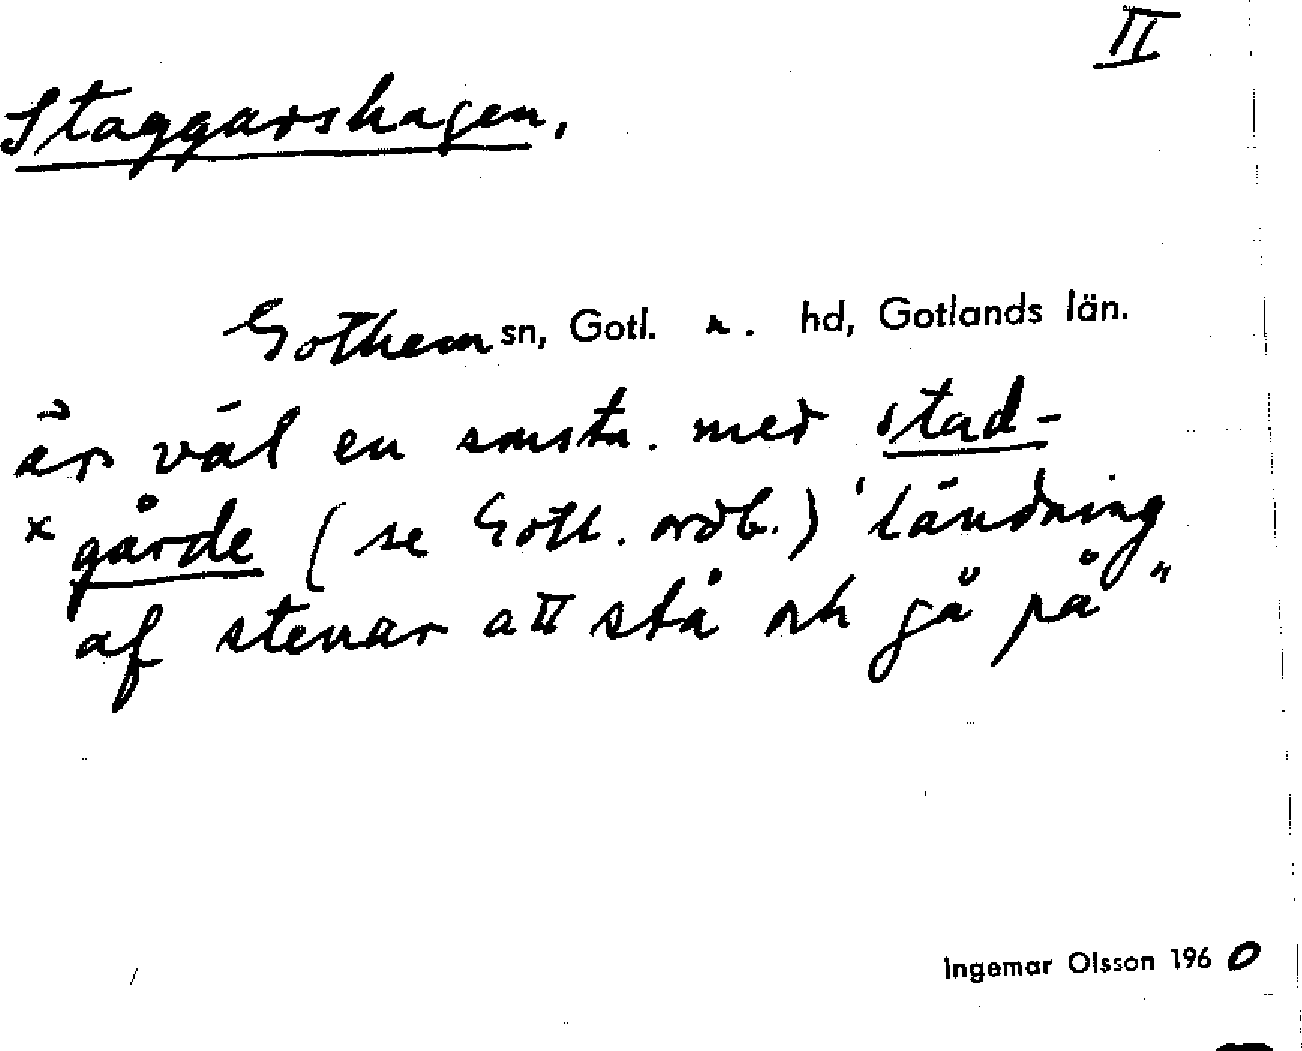 II
Staggarshagen.
Gothem sn, Gotl. n. hd, Gotlands län.
är väl en smstn. med stad-
x gårde (se Gotl. ordb.) 'ländning
af stenar att stå och gå på"
Ingemar Olsson 1960